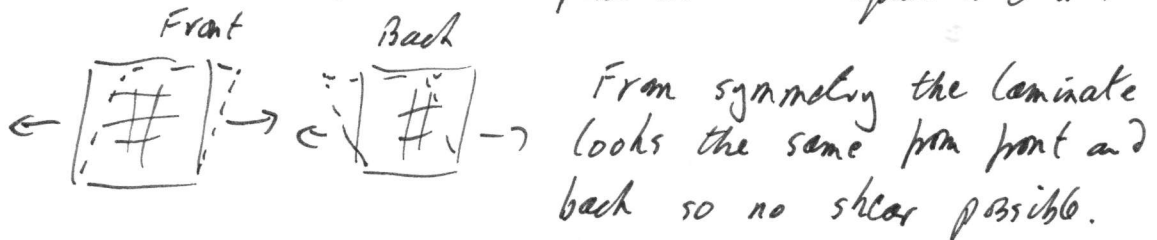 Front
Back
From symmetry the laminate
looks the same from front and
back so no shear possible.